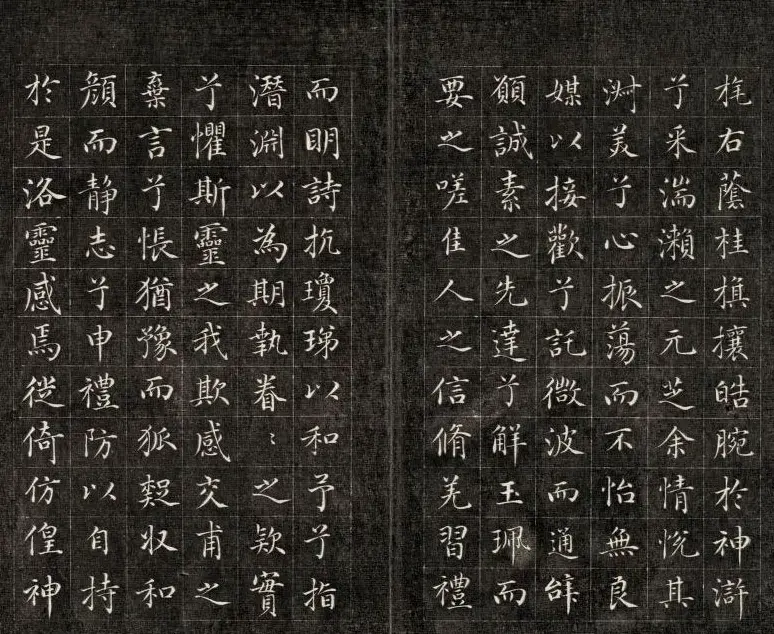 旄右蔭桂旗攘皓腕於神滸
兮采湍瀨之元芝余情悅其
淑美兮心振蕩而不怡無良
媒以接歡兮託微波而通辭
願誠素之先達兮解玉珮而
要之嗟佳人之信脩羌習禮
而眀詩抗瓊珶以和予兮指
潛淵以為期執眷〻之欵實
兮懼斯靈之我欺感交甫之
棄言兮悵猶豫而狐疑收和
顏而静志兮申禮防以自持
於是洛靈感焉徙倚仿偟神